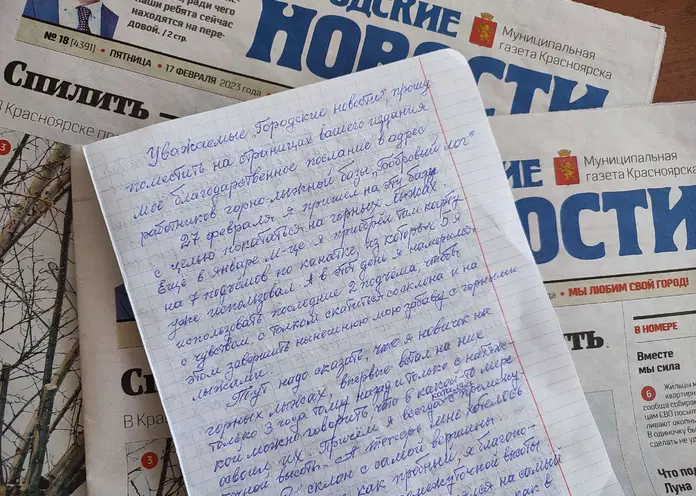 , ради чего
наши ребята сейчас
находятся на пере-
довой. / 2 стр.
ГОРОДСКИЕ
НОВОСТИ
Муниципальная
газета Красноярска
№ 18 (4391) • ПЯТНИЦА • 17 ФЕВРАЛЯ 2023 года
Спилить —
В Красноярске
3
Уважаемые „Городские новости", прошу
поместить на страницах вашего издания
моё благодарственное послание в адрес
работников горно-лыжной базы „Бобровый лог"
27 февраля я пришёл на эту базу
с целью покататься на горных лыжах.
Ещё в январе м-це я приобрёл там карту
на 7 подъёмов по канатке, из которых 5 я
уже использовал. А в этот день я намеривался
использовать последние 2 подъёма, чтобы
с чувством, с толком скатиться со склона и на
этом завершить нынешнюю мою забаву с горными
лыжами.
Тут надо сказать, что я новичок на
горных лыжах, впервые встал на них
только 3 года тому назад и только с натяж-
кой можно говорить, что в какой-то мере
освоил их. Причём я всегда катался с промежу-
точной высоты. А теперь мне хотелось
склон с самой вершины.
как пробный, я благопо-
межуточной высоты
на самый
как в
ДСКИЕ
ВОСТИ
Муниципальная
газета Красноярска
• МЫ ЛЮБИМ СВОЙ ГОРОД!
Спилить
В Кра
3
ть
В НОМЕРЕ
Вместе
мы сила
6
Жильцы
квартирн
сообща собира
цам СВО посыл
ливают окопны
В одиночку бы
сделать не уда
Что по
Луна